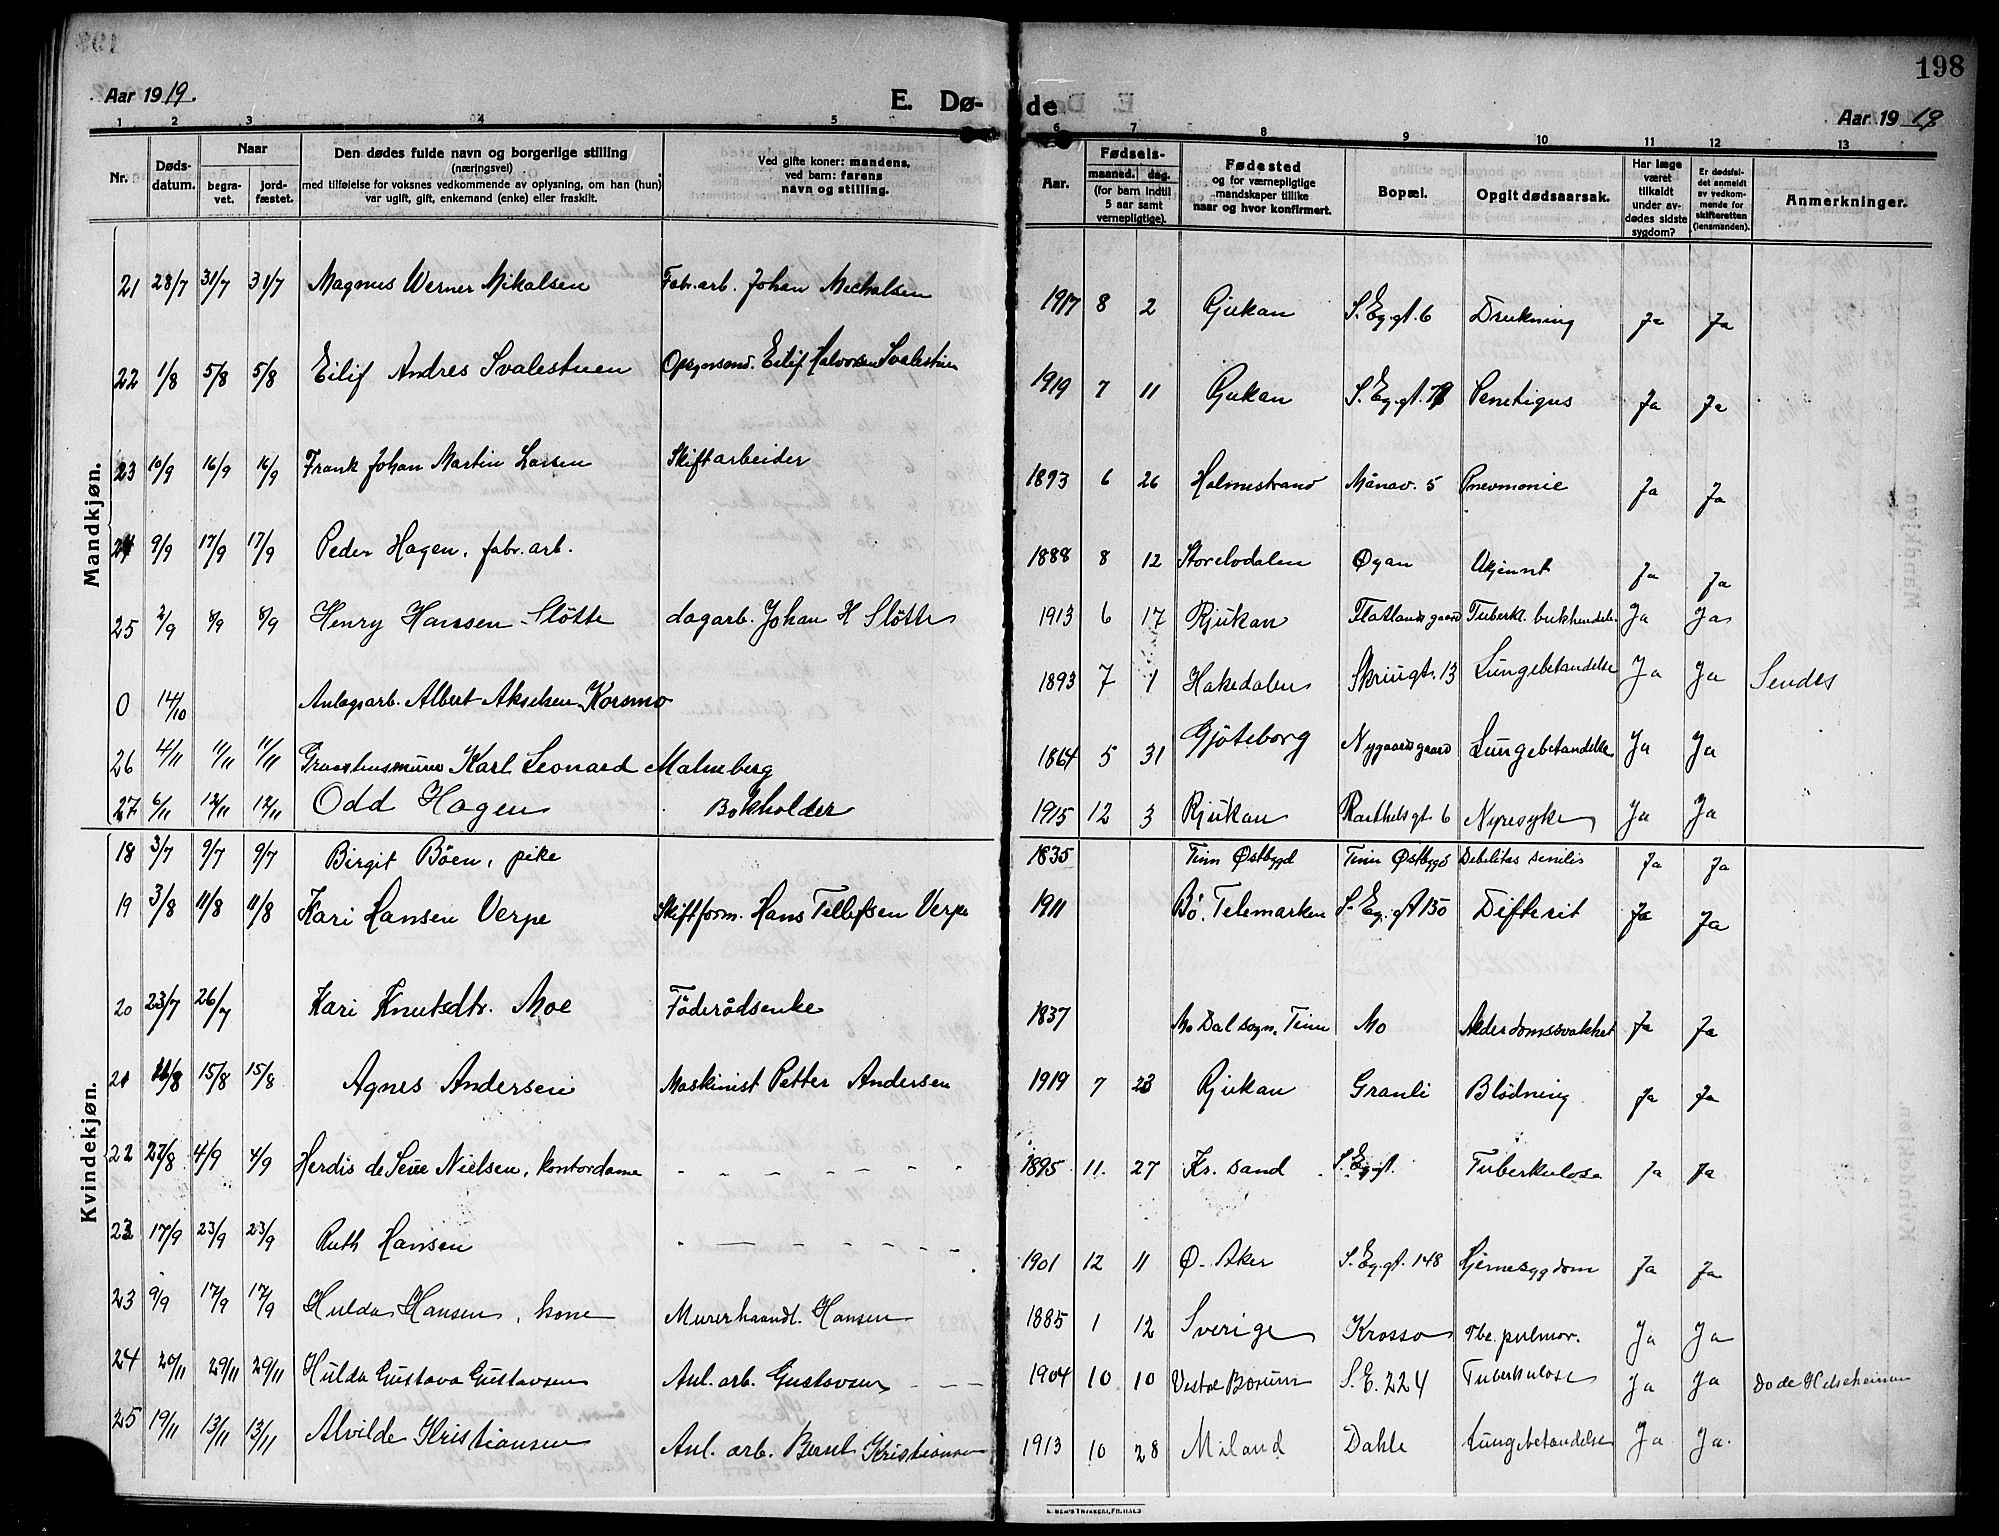 198
Aar 1919. E. Dø- de Aar 1919
1 2 3 4 5 6 7 8 9 10 11 12 13
Nr. Døds-datum. Naar begra-vet. jord-fæstet. Den dødes fulde navn og borgerlige stilling (næringsvei) med tilføielse for voksnes vedkommende av oplysning, om han (hun) var ugift, gift, enkemand (enke) eller fraskilt. Ved gifte koner: mandens, ved barn: farens navn og stilling. Aar. Fødsels- maaned. dag. (for barn indtil 5 aar samt vernepligtige). Fødested og for værnepligtige mandskaper tillike naar og hvor konfirmert. Bopæl. Opgit dødsaarsak. Har læge været tilkaldt under av-dødes sidste sygdom? Er dødsfal-det anmeldt av vedkom-mende for skifteretten (lensmanden). Anmerkninger.
Mandkjøn.
21 28/7 31/7 31/7 Magnus Werner Mikalsen Fabr.arb. Johan Michalsen 1917 8 2 Rjukan S. Eg.gt. 6 Drukning Ja Ja
22 1/8 5/8 5/8 Eilif Andres Svalestuen Opsynsmd. Eilif Halvorsen Svalestuen 1919 7 11 Rjukan S. Eg.gt. Ja Ja
23 10/9 16/9 16/9 Frank Johan Martin Larsen Skiftarbeider 1893 6 26 Holmestrand Månav. 5 Pnevmonie Ja Ja
24 9/9 17/9 17/9 Peder Hagen, fabr. arb. 1888 8 12 Storelvdalen Øyan Ukjennt Ja Ja
25 2/9 8/9 8/9 Henry Hanssen Slötte dagarb. Johan H Slötte 1913 6 17 Rjukan Flatlandsgaard Tuberkl. bukhindebe. Ja Ja
0 14/10 Anlegsarb. Albert Akselsen Korsmo 1893 7 1 Hakedalen Skriugt. 13 Lungebetandelse Ja Ja Sendes
26 4/11 11/11 11/11 Graasteinsmurer Karl Leonard Malmberg 1864 5 31 Gjöteborg Nygaardsgaard Lungebetandelse Ja Ja
27 6/11 12/11 12/11 Odd Hagen Bokholder 1915 12 3 Rjukan gt. 6 Nyresyke Ja Ja
Kvindekjøn.
18 3/7 9/7 9/7 Birgit Böen, pike 1835 Tinn Østbygd Tinn Østbygd Debilitas senilis Ja Ja
19 3/8 11/8 11/8 Kari Hansen Verpe Skiftform. Hans Tellefsen Verpe 1911 Bö. Telemarken S. Eg. gt 150 Difterit Ja Ja
20 23/7 26/7 Kari Knutsdtr. Moe Föderådsenke 1837 Mo Dal sogn, Tinn Mo Alderdomssvakhet Ja Ja
21 15/8 15/8 Agnes Andersen Maskinist Petter Andersen 1919 7 23 Rjukan Granli Blödning Ja Ja
22 27/8 4/9 4/9 Herdis de Seue Nielsen, kontordame - - - - - - 1895 11. 27 Kr. sand S. Eg.gt. Tuberkulose Ja Ja
23 17/9 23/9 23/9 Ruth Hansen - - - - - - 1901 12 11 Ø. Aker S. Eg.gt. 148 Hjernesygdom Ja Ja
23 9/9 17/9 17/9 Hulda Hansen, kone Murerhaandl. Hansen 1885 1 12 Sverige Krosso Tbc. pulmor. Ja Ja
24 20/11 29/11 29/11 Hulda Gustava Gustavsen Anl. arb. Gustavsen - - - 1904 10 10 Vestre Bærum S. E. 224 Tuberkulose Ja Ja
25 19/11 13/11 13/11 Alvilde Kristiansen Anl. arb. Bernt Kristiansen 1913 10 28 Miland Dahle Lungebetandelse Ja Ja.